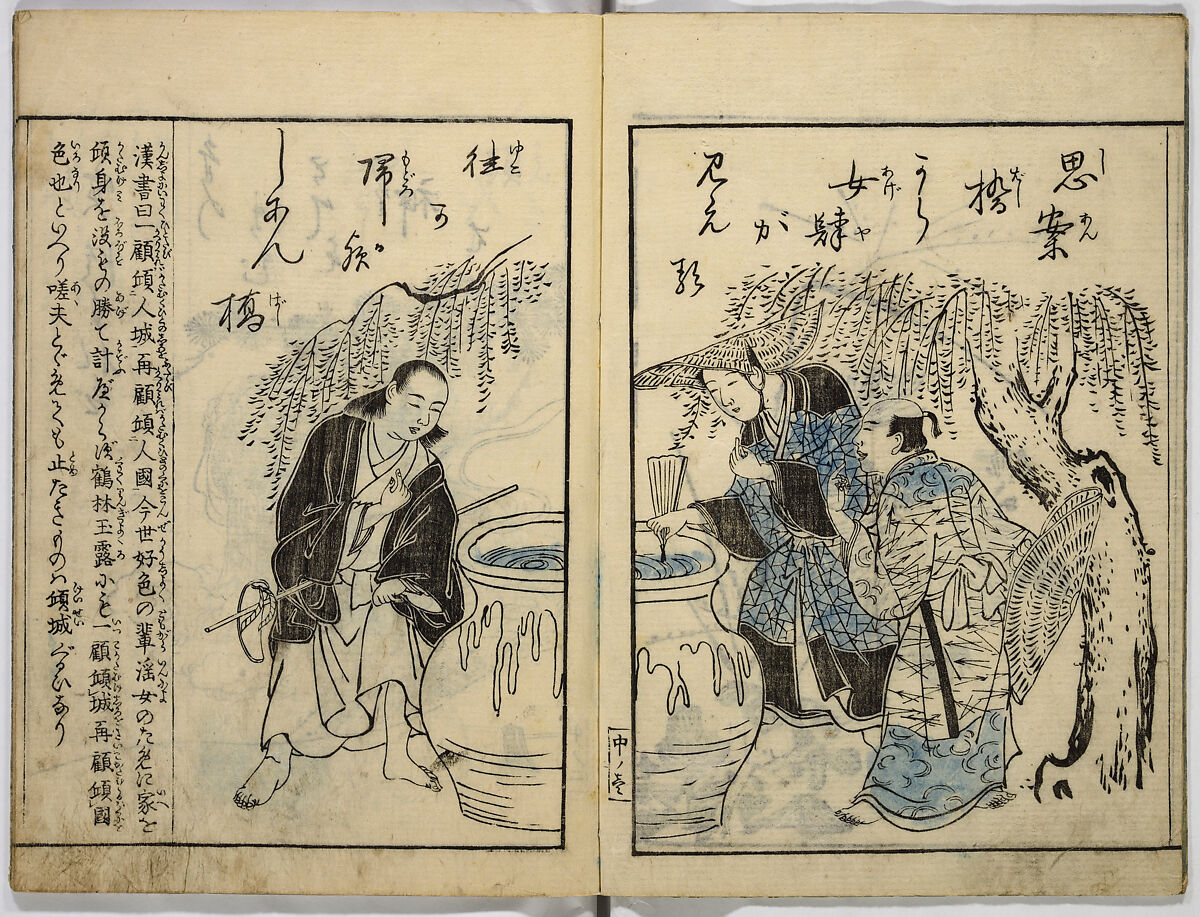 思案
橋
女肆
が
見え
中ノ壱
往
か
帰
しあん
橋
漢書曰一顧傾人城再顧傾人國今世好色の輩淫女のために家を
傾身を没もの勝て計べからず鶴林玉露にも一顧傾城再顧傾國
色也といへり嗟夫とゞめても止たきものハ傾城ぐるひなり